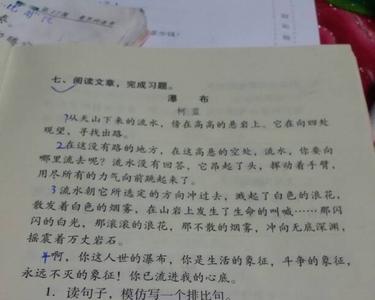 七、阅读文章，完成习题。
瀑 布
柯 蓝
1从天山下来的流水，傍在高高的悬岩上。它在向四处
观望，寻找出路。
2在这没有路的地方，在这高悬的空处，流水，你要向
哪里流去呢？流水没有回答，它昂起了头，挥动着手臂，
用尽所有的力气向前跳起来了。
3流水朝它所选定的方向冲过去，溅起了白色的浪花，
散发着白色的烟雾，在山岩上发生了生命的叫喊……那闪
闪的白光，那滚滚的浪花，那不散的烟雾，冲向无底深渊，
摇震着万丈岩石。
4啊，你这人世的瀑布，你是生活的象征，斗争的象征，
永远不灭的象征！你已流进我的心底。
1．读句子，模仿写一个排比句。